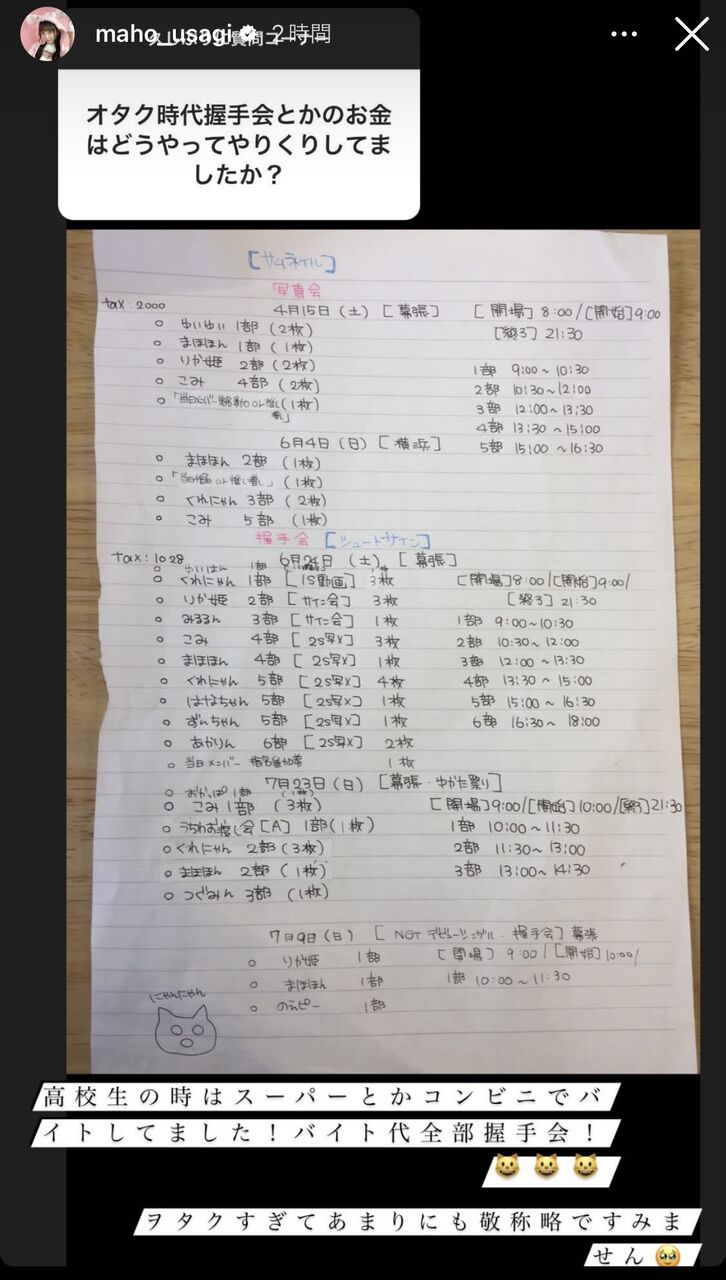 maho_usagi 2時間
オタク時代握手会とかのお金
はどうやってやりくりしてま
したか？
[サムネイル]
写真会
tax:2000
4月15日(土) [幕張] [開場] 8:00/[開始]9:00
ゆいゆい 1部 (2枚) [終了] 21:30
まほほん 1部 (1枚)
りか姫 2部 (2枚) 1部 9:00~10:30
こみ 4部 (2枚) 2部 10:30~12:00
(1枚) 3部 12:00~13:30
4部 13:30~15:00
6月4日(日) [横浜] 5部 15:00~16:30
まほほん 2部 (1枚)
(1枚)
くれにゃん 3部 (2枚)
こみ 5部 (1枚)
握手会 [シュートサイン]
tax:1028 6月24日 (土) [幕張]
1部
くれにゃん 1部 [1S動画] 3枚 [開場]8:00/[開始]9:00/
りか姫 2部 [サイン会] 3枚 [終了] 21:30
みるるん 3部 [サイン会] 1枚 1部 9:00~10:30
こみ 4部 [2S写メ] 3枚 2部 10:30~12:00
まほほん 4部 [2S写メ] 1枚 3部 12:00~13:30
くれにゃん 5部 [2S写メ] 4枚 4部 13:30~15:00
はなちゃん 5部 [2S写メ] 1枚 5部 15:00~16:30
ずんちゃん 5部 [2S写メ] 1枚 6部 16:30~18:00
あかりん 6部 [2S写メ] 2枚
当日メンバー 1枚
7月23日(日) [幕張・ゆかた祭り]
おかっぱ 1部
こみ 1部 (3枚) [開場]9:00/[開始]10:00/[終了]21:30
うちわお渡し会[A] 1部(1枚) 1部 10:00~11:30
くれにゃん 2部 (3枚) 2部 11:30~13:00
まほほん 2部 (1枚) 3部 13:00~14:30
つぐみん 3部 (1枚)
7月9日(日) [NGTデビューシングル・握手会]幕張
りか姫 1部 [開場] 9:00/[開始]10:00/
まほほん 1部 1部 10:00~11:30
のえピー 1部
にゃんにゃん
高校生の時はスーパーとかコンビニでバ
イトしてました！バイト代全部握手会！
😺 😺 😺
ヲタクすぎてあまりにも敬称略ですみま
せん🥹